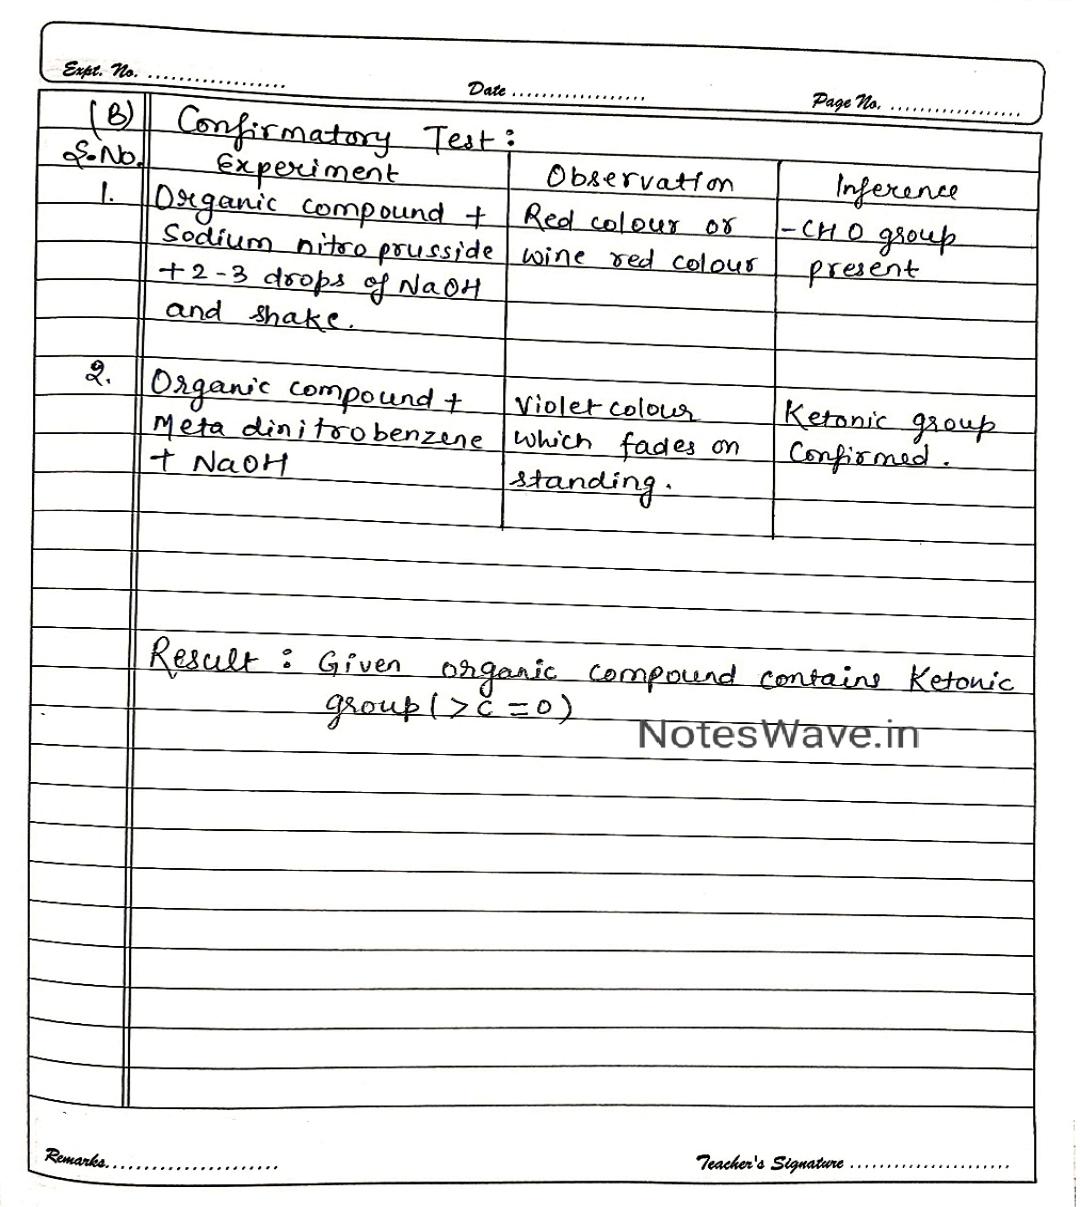 Expt. No. ..................
Date ..................
Page No. ..................
(B) Confirmatory Test :
S.No. Experiment Observation Inference
1. Organic compound + Red colour or -CHO group
Sodium nitroprusside wine red colour present
+2-3 drops of NaOH
and shake.
2. Organic compound + Violet colour Ketonic group
Meta dinitrobenzene which fades on Confirmed.
+ NaOH standing.
Result : Given organic compound contains Ketonic
group (>C=O)
NotesWave.in
Remarks.......................
Teacher's Signature ......................